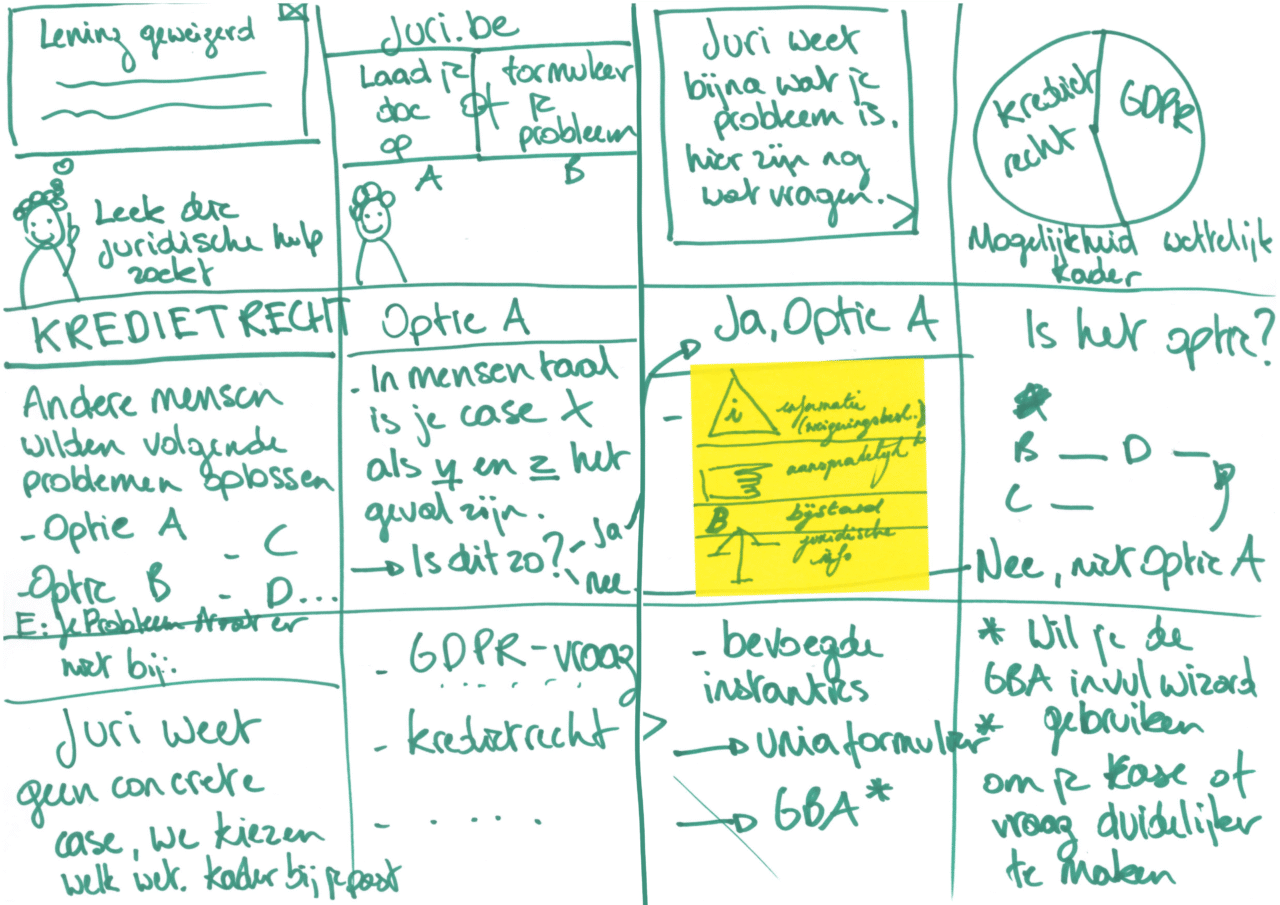 Lening geweigerd
Leek die
juridische hulp
zoekt
Juri.be
Laad je
doc
op
of
formuleer
je
probleem
A
B
Juri weet
bijna wat je
probleem is.
hier zijn nog
wat vragen.
krediet
recht
GDPR
Mogelijkheid wettelijk
kader
KREDIETRECHT
Andere mensen
wilden volgende
problemen oplossen
- Optie A
- C
- Optie B
- D...
E: je Probleem staat er
niet bij:
Optie A
- In mensentaal
is je case X
als y en z het
geval zijn.
→ Is dit zo?
- Ja
nee
Ja, Optie A
i
informatie
(weigeringsbesl.)
aansprakelijkh
B
bijstand
juridische
info
Is het optie?
B — D —
C —
Nee, niet Optie A
Juri weet
geen concrete
case, we kiezen
welk wet. kader bij je past
- GDPR-vraag
. . . . . .
- kredietrecht
- . . . . .
>
- bevoegde
instanties
→ Unia formulier*
→ GBA*
* Wil je de
GBA invul wizard
gebruiken
om je kase of
vraag duidelijker
te maken